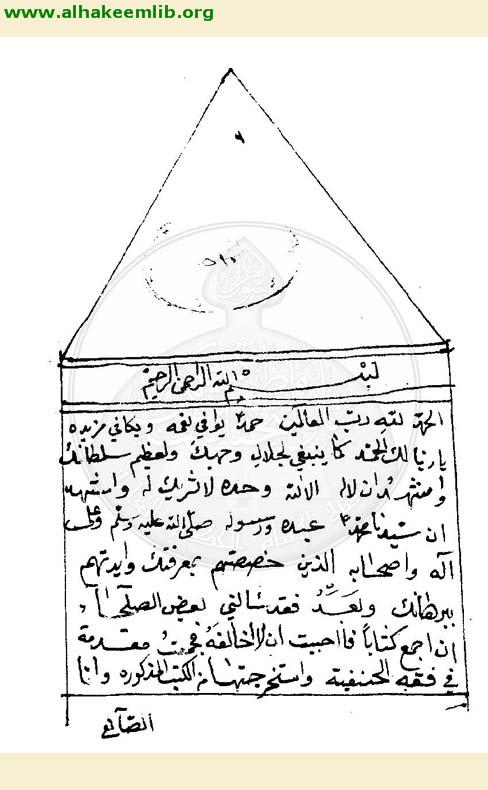 www.alhakeemlib.org
بسم الله الرحمن الرحيم
الحمد لله رب العالمين حمدا يوافي نعمه ويكافي مزيده
يا ربنا لك الحمد كما ينبغي لجلال وجهك ولعظيم سلطانك
واشهد ان لا اله الا الله وحده لا شريك له واشهد
ان سيدنا محمدا عبده ورسوله صلى الله عليه وسلم وعلى
آله واصحابه الذين خصصتهم بمعرفتك وايدتهم
ببرهانك وبعد فقد سالني بعض الصلحاء
ان اجمع كتابا فاحببت ان لا اخالفه فجمعت مقدمة
في فقه الحنفية واستخرجتها من الكتب المذكوره وانا